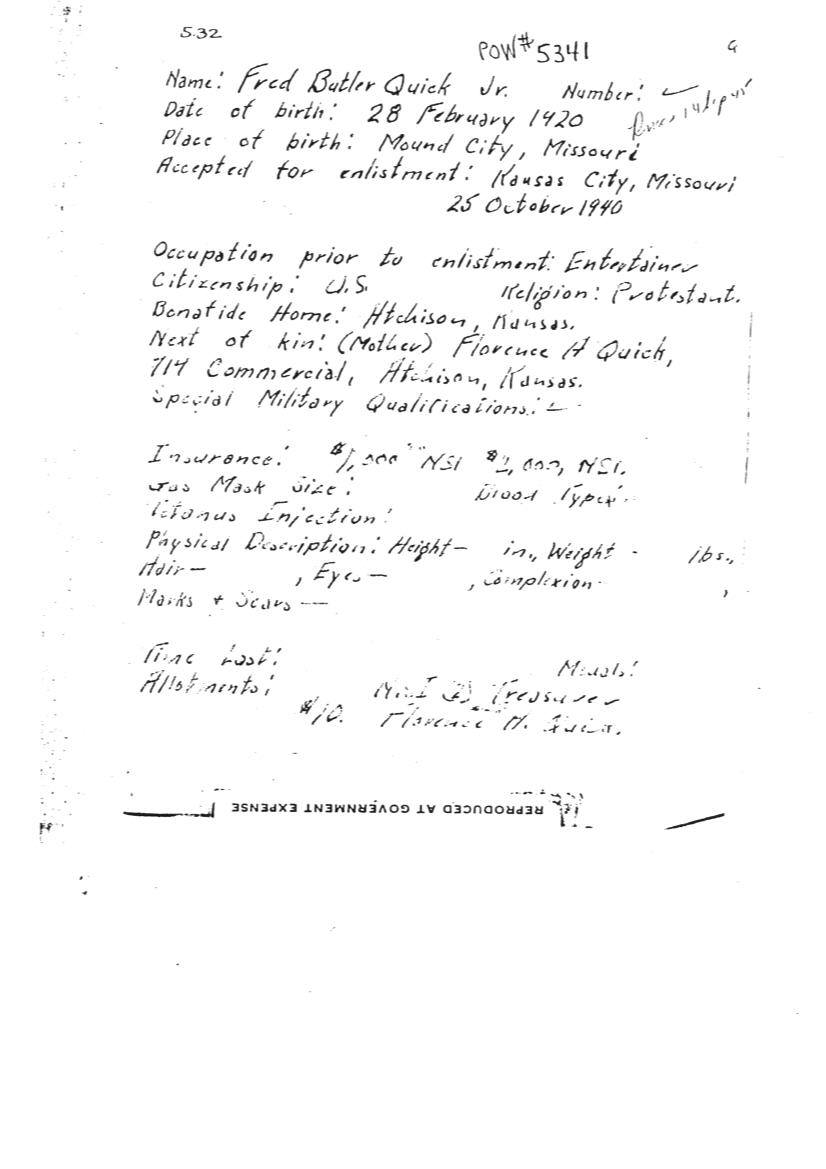 5.32
POW# 5341
Name: Fred Butler Quick Jr. Number: -
Date of birth: 28 February 1920
Place of birth: Mound City, Missouri
Accepted for enlistment: Kansas City, Missouri
25 October 1940
Occupation prior to enlistment: Entertainer
Citizenship: U.S. Religion: Protestant.
Bonafide Home: Atchison, Kansas.
Next of kin: (Mother) Florence H Quick,
714 Commercial, Atchison, Kansas.
Special Military Qualifications: -
Insurance: $1,000 NSI $2,000, NSI.
Gas Mask Size: Blood Type:
Tetanus Injection:
Physical Description: Height- in., Weight - lbs.,
Hair- , Eyes- , Complexion- ,
Marks + Scars -
Time Lost: Medals:
Allotments: Treasurer
$10. Florence H. Quick.
REPRODUCED AT GOVERNMENT EXPENSE